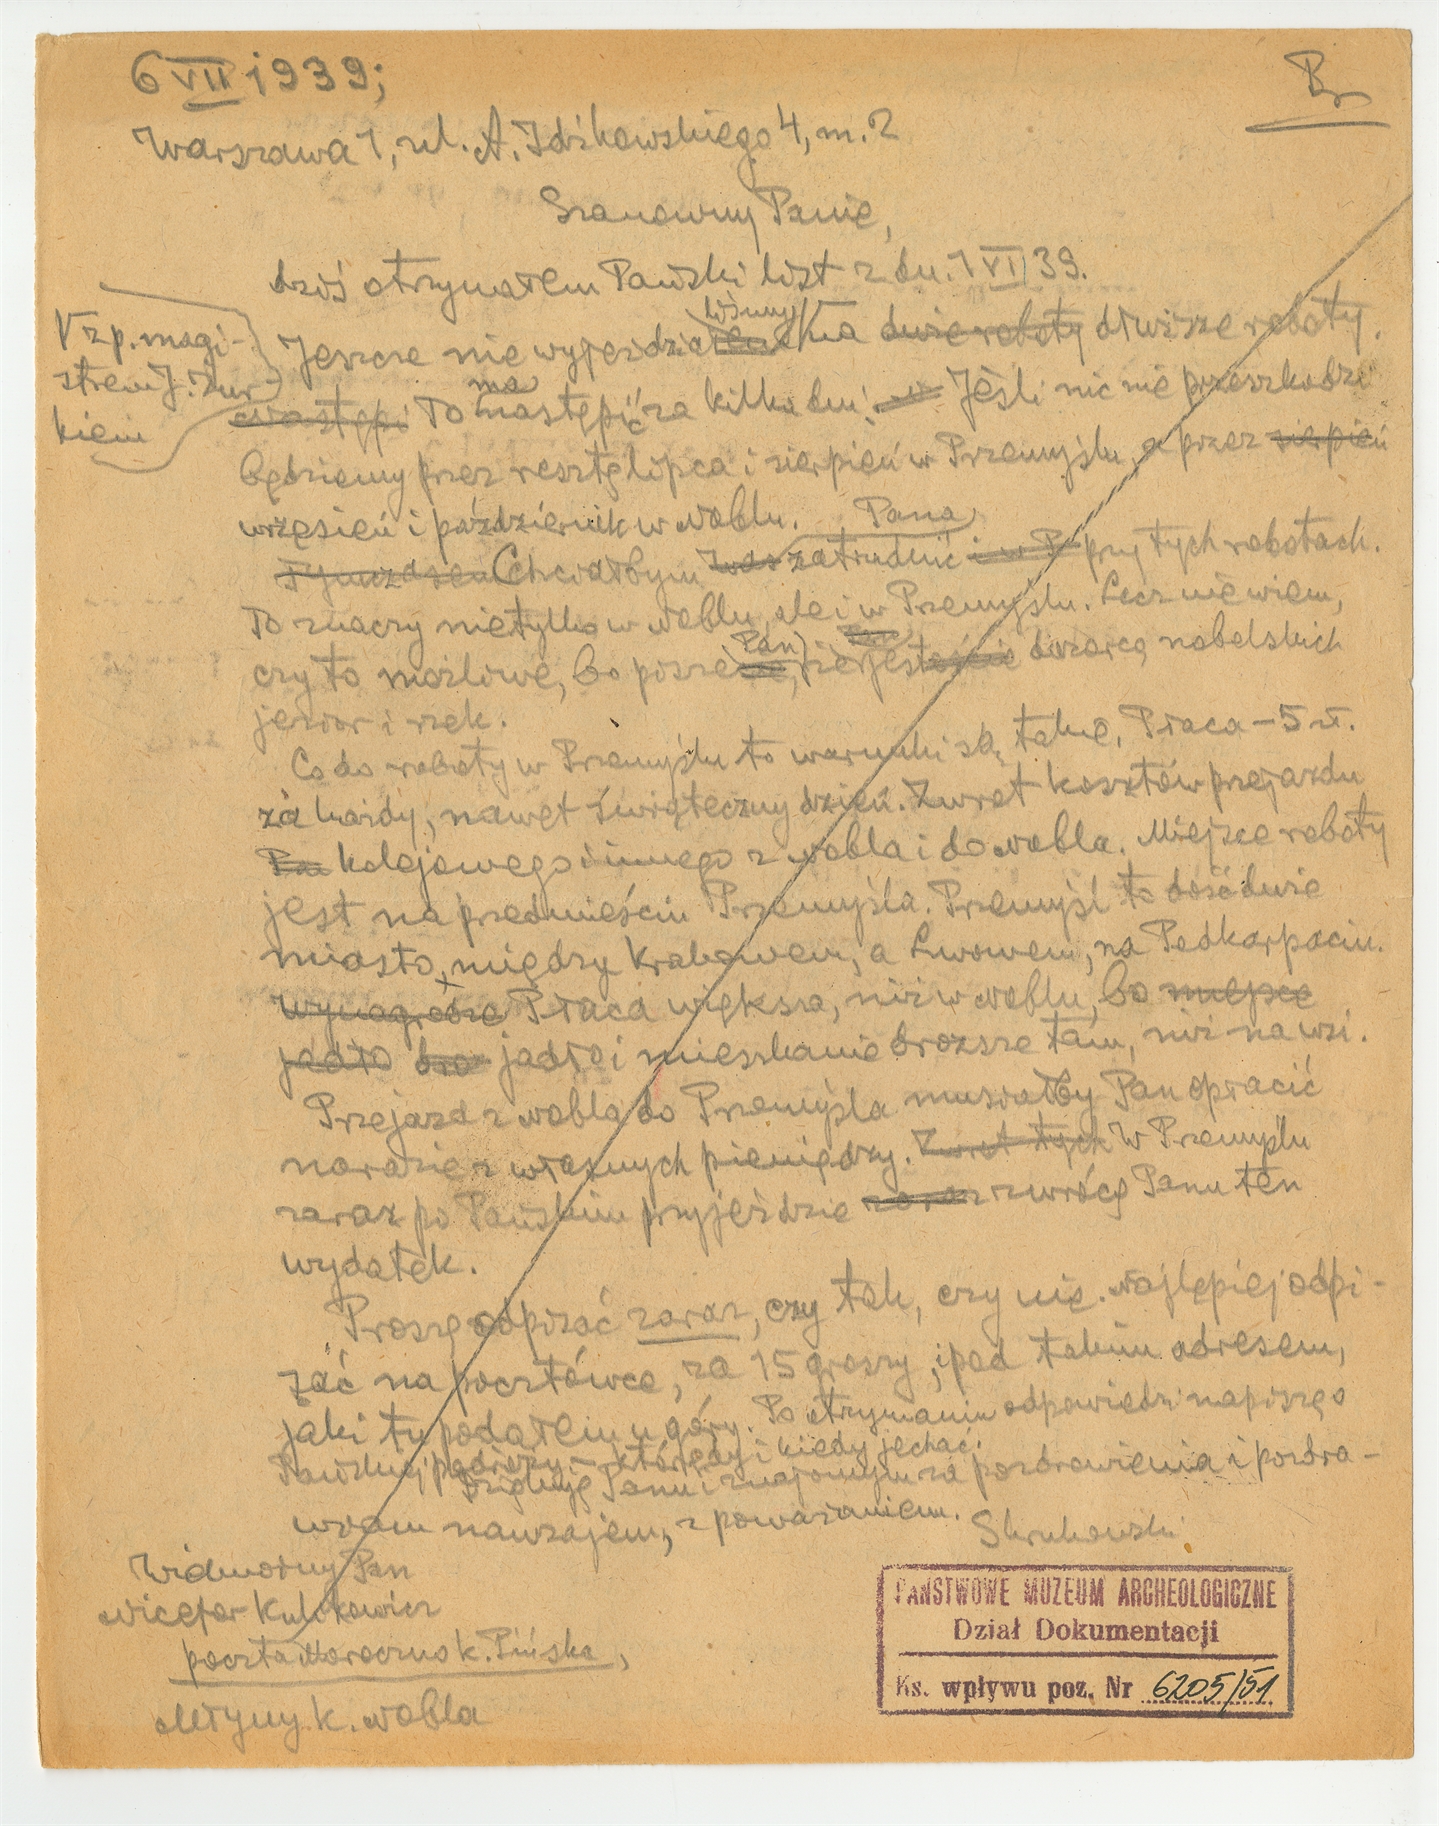 6 VII 1939;
Br
Warszawa 1, ul. A. Idzikowskiego 4, m. 2
Szanowny Panie,
dziś otrzymałem Pański list z dn. 1 VI 39.
Jeszcze nie wyjeżdżaliśmy na duże roboty dłuższe roboty.
V z p. magi-
strem J. Żur-
kiem
Nastąpi To ma nastąpić za kilka dni. Jeśli nic nie przeszkodzi
będziemy przez resztę lipca i sierpień w Przemyślu, a przez sierpień
wrzesień i październik w Noblu.
Tymczasem Chciałbym Was Pana zatrudnić i w P przy tych robotach.
To znaczy nietylko w Noblu, ale i w Przemyślu. Lecz nie wiem,
czy to możliwe, bo pisze Pan, że jest dozorcą nobelskich
jezior i rzek.
Co do roboty w Przemyślu to warunki są takie, Płaca – 5 zł.
za każdy, nawet świąteczny dzień. Zwrot kosztów przejazdu
Pa kolejowego i innego z Nobla i do Nobla. Miejsce roboty
jest na przedmieściu Przemyśla. Przemyśl to dość duże
miasto, między Krakowem, a Lwowem, na Podkarpaciu.
Wynagrodze Płaca większa, niż w Noblu, bo miejsce
jadło dro jadło i mieszkanie droższe tam, niż na wsi.
Przejazd z Nobla do Przemyśla musiałby Pan opłacić
narazie z własnych pieniędzy. Zwrot tych W Przemyślu
zaraz po Pańskim przyjeździe zaraz zwrócę Panu ten
wydatek.
Proszę odpisać zaraz, czy tak, czy nie. Najlepiej odpi-
sać na pocztówce, za 15 groszy, i pod takim adresem,
jaki tu podałem u góry. Po otrzymaniu odpowiedzi napiszę o
Pańskiej podróży – którędy i kiedy jechać.
Dziękuję Panu i znajomym za pozdrowienia i pozdra-
wiam nawzajem, z poważaniem. Skrukowski
Widmożny Pan
Nicefor Kulikowicz
poczta Moroczno k. Pińska,
Młyny k. Nobla
PAŃSTWOWE MUZEUM ARCHEOLOGICZNE
Dział Dokumentacji
Ks. wpływu poz. Nr 6205/51